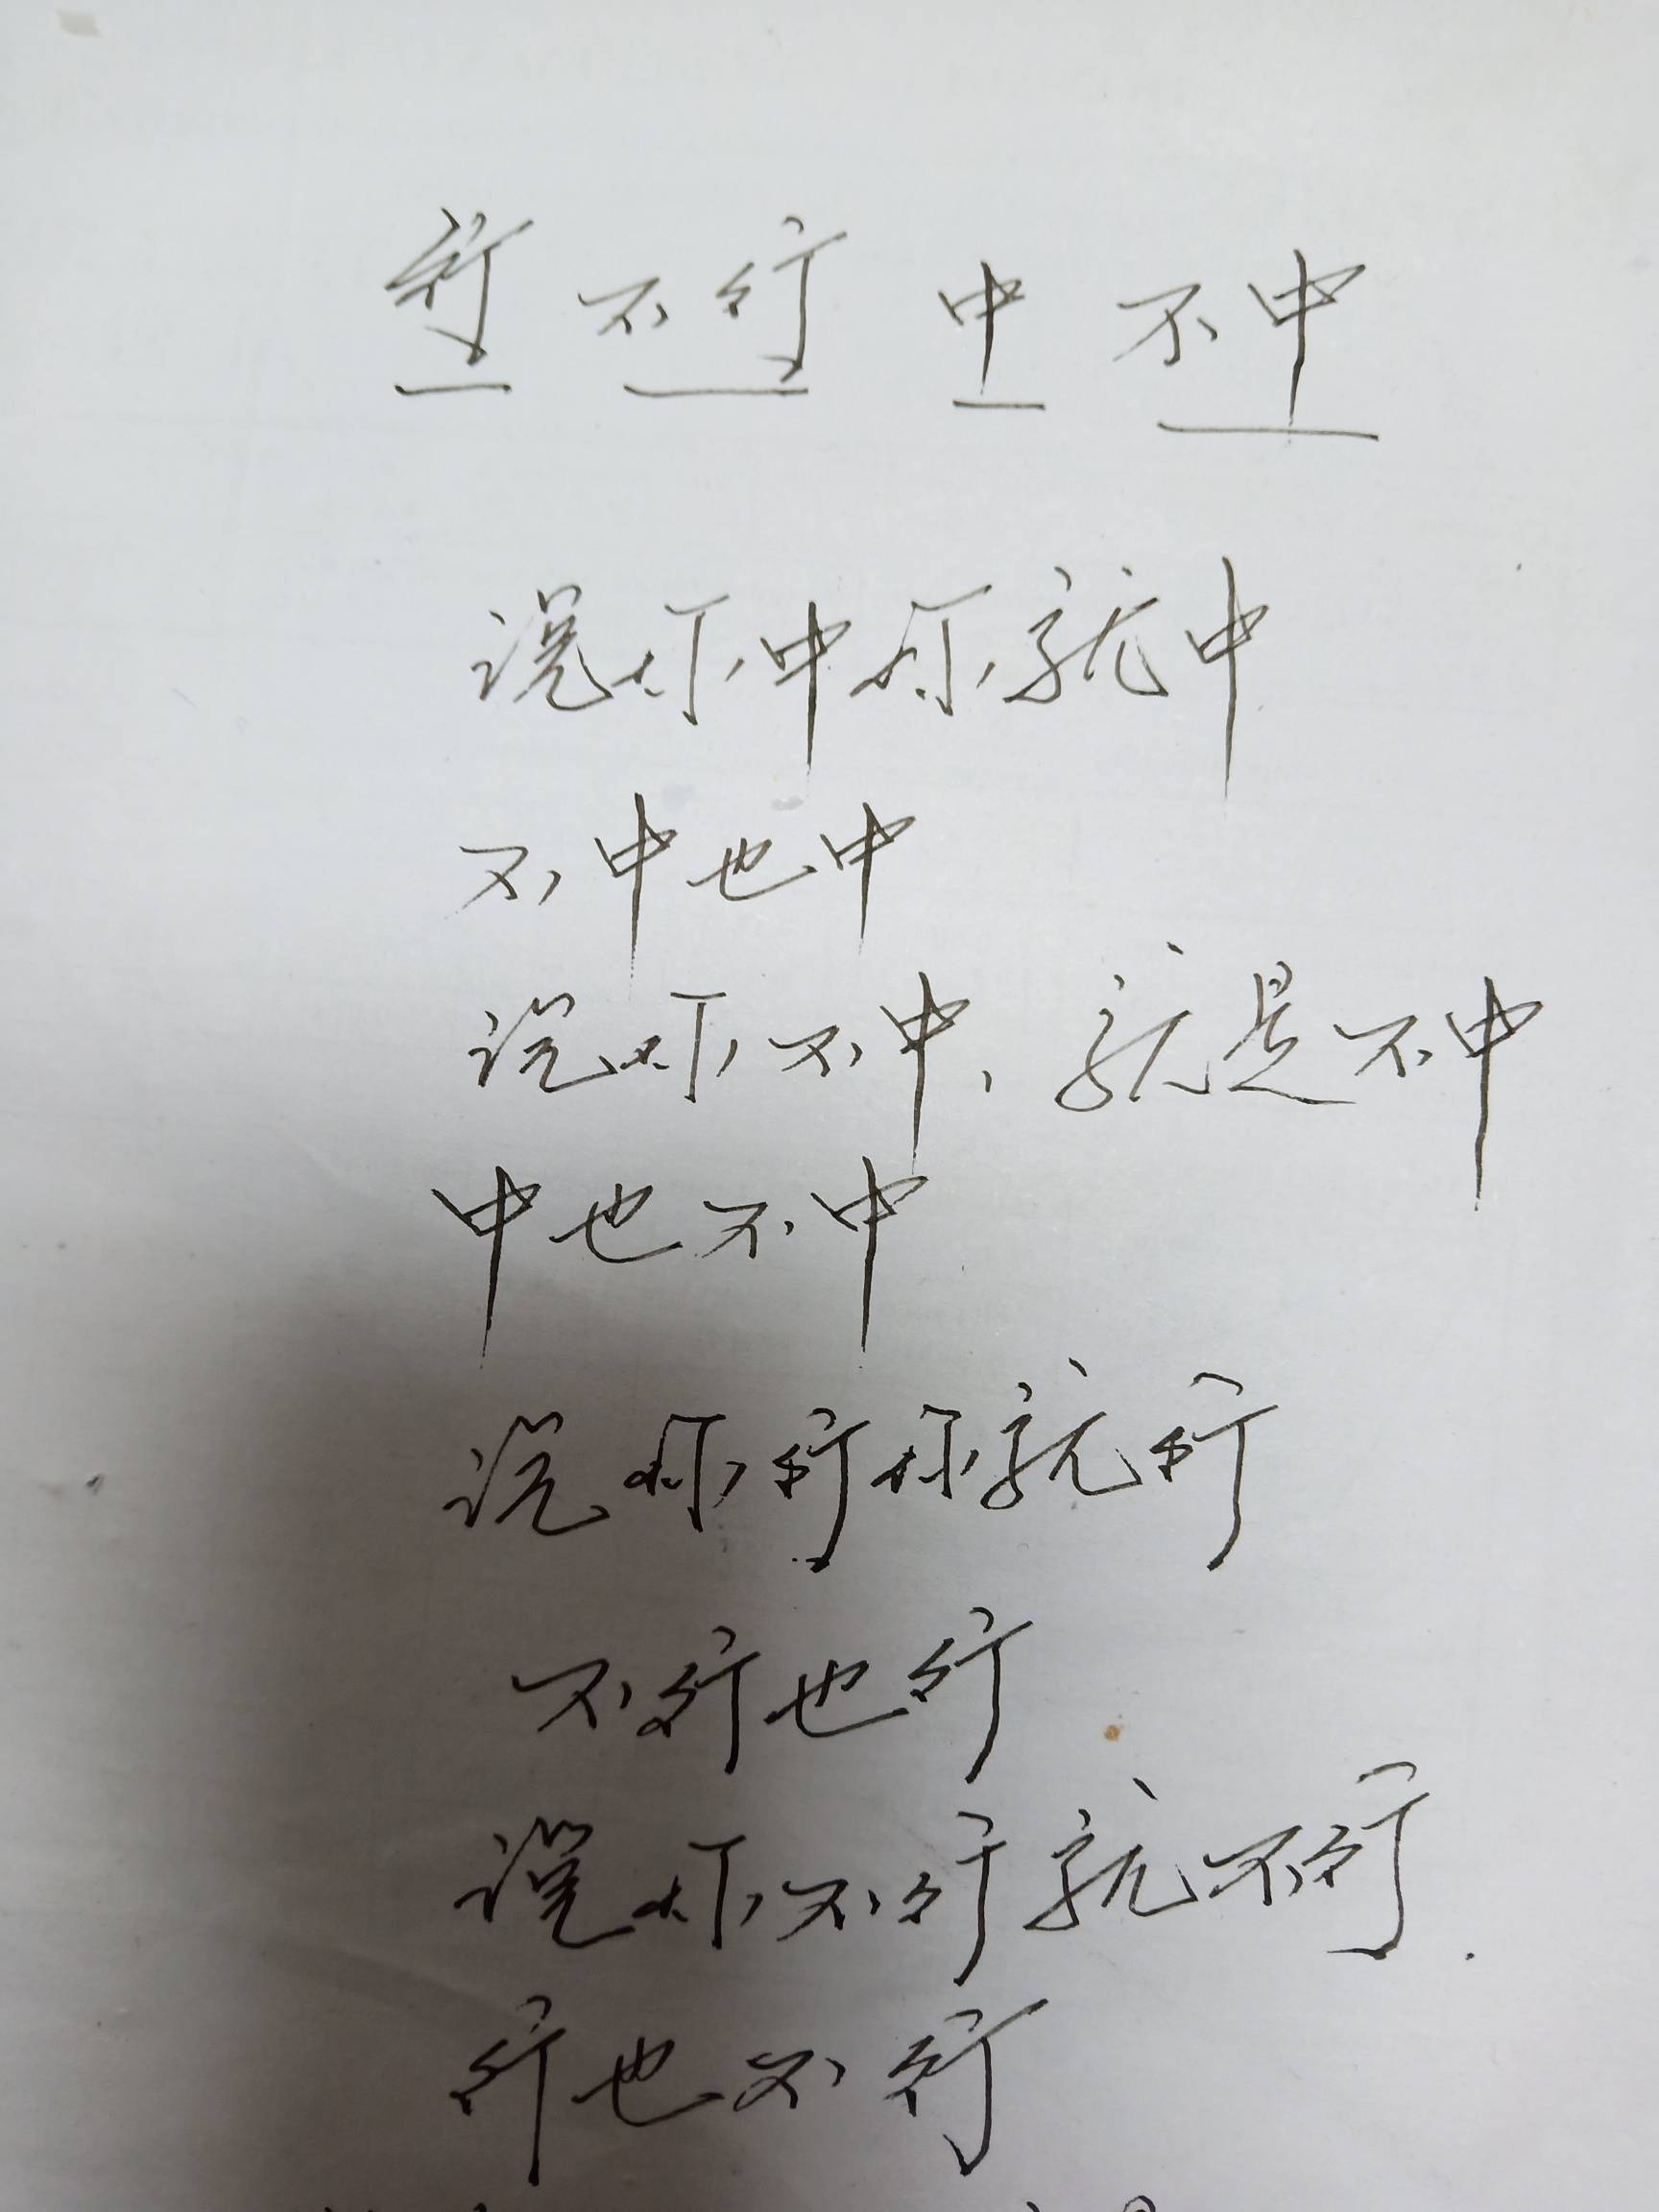 行 不行 中 不中
说你中你就中
不中也中
说你不中、就是不中
中也不中
说你行你就行
不行也行
说你不行就不行.
行也不行